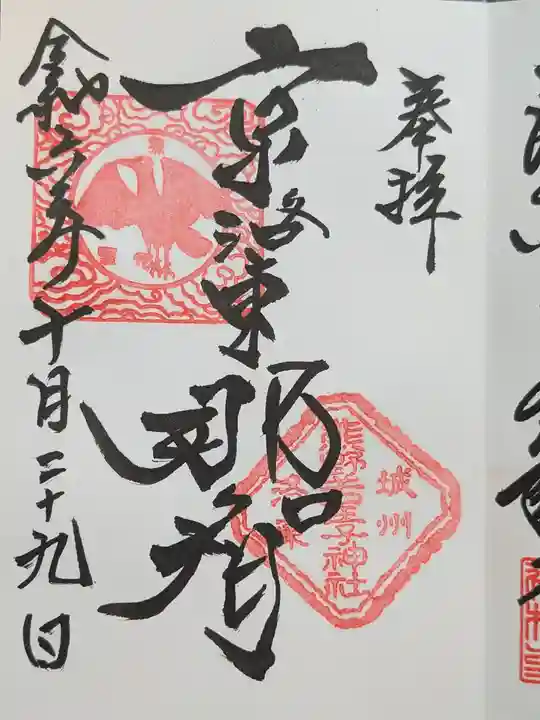 奉拝
京洛東那智
令和二年十月二十九日
城州
若王子神社
洛東